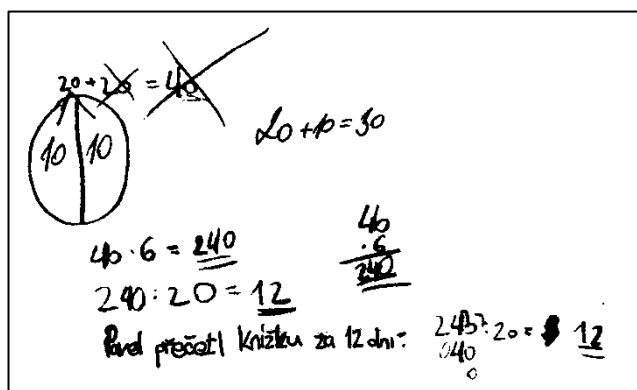 20 + 20 = 40
10 10
20 + 10 = 30
40 · 6 = 240
40
· 6
240
240 : 20 = 12
Pavel přečetl knížku za 12 dní.
240 : 20 = 12
040
0